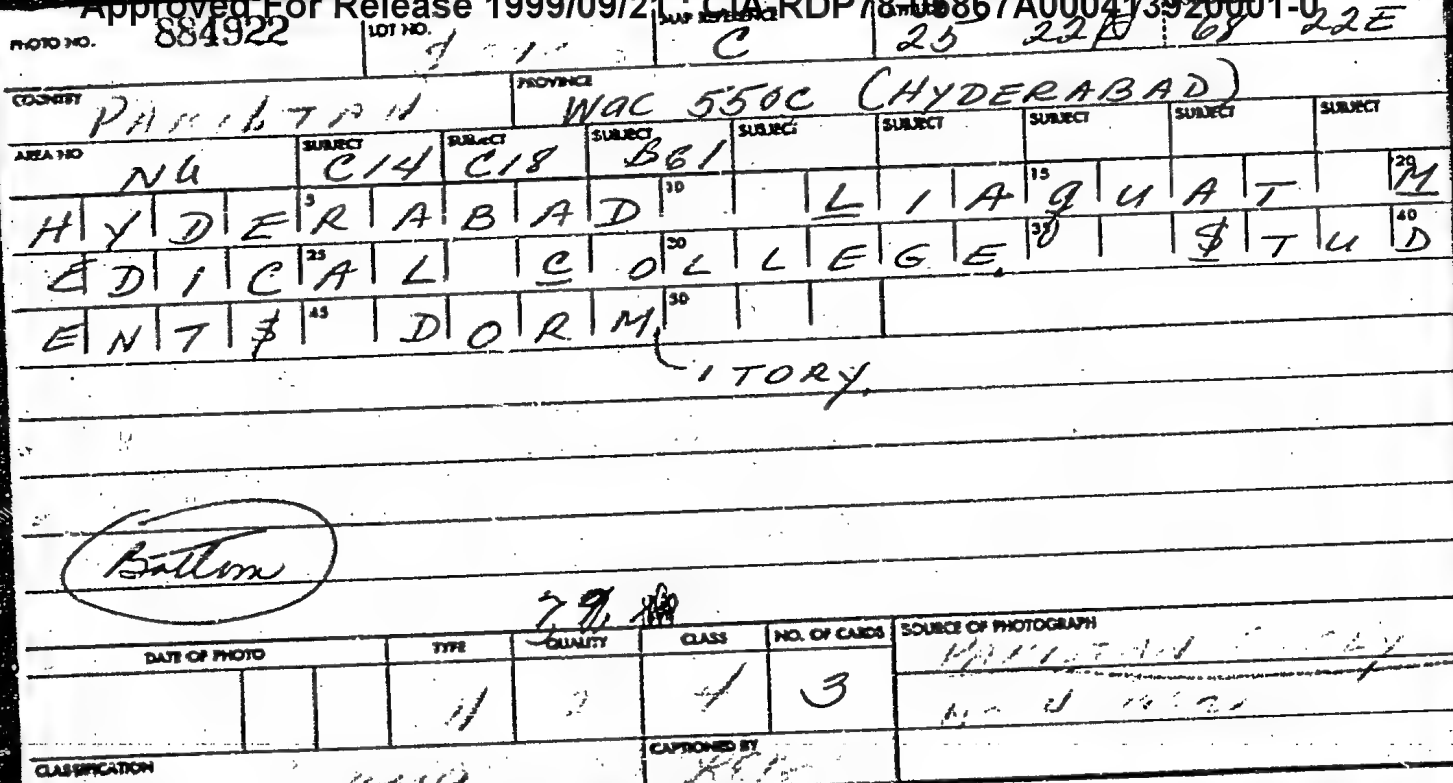 Approved For Release 1999/09/21 : CIA-RDP78-03867A000413920001-0
PHOTO NO. 884922 LOT NO. MAP REFERENCE C 25 22N 68 22E
COUNTRY PAKISTAN PROVINCE WAC 550C (HYDERABAD)
AREA NO NU SUBJECT C14 SUBJECT C18 SUBJECT B61 SUBJECT SUBJECT SUBJECT SUBJECT SUBJECT
HYDERABAD LIAQUAT M
EDICAL COLLEGE. STUD
ENTS DORM
ITORY.
Bottom
DATE OF PHOTO TYPE QUALITY CLASS NO. OF CARDS SOURCE OF PHOTOGRAPH
4 2 4 3 PAKISTAN
CLASSIFICATION CAPTIONED BY